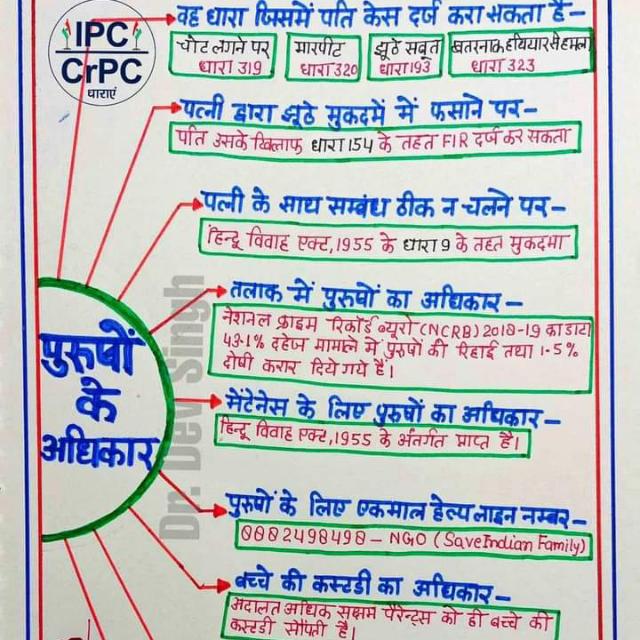 वह धारा जिसमें पति केस दर्ज करा सकता है–
IPC
CrPC
धाराएं
चोट लगने पर
धारा 319
मारपीट
धारा 320
झूठे सबूत
धारा 193
खतरनाक हथियार से हमला
धारा 323
पत्नी द्वारा झूठे मुकदमें में फसाने पर–
पति उसके खिलाफ धारा 154 के तहत FIR दर्ज कर सकता
पत्नी के साथ सम्बंध ठीक न चलने पर–
हिन्दू विवाह एक्ट,1955 के धारा 9 के तहत मुकदमा
तलाक में पुरुषों का अधिकार–
नेशनल क्राइम रिकॉर्ड ब्यूरो (NCRB) 2018-19 का डाटा
43.1% दहेज मामले में पुरुषों की रिहाई तथा 1.5%
दोषी करार दिये गये है।
पुरुषों
के
अधिकार
मेंटेनेस के लिए पुरुषों का अधिकार–
हिन्दू विवाह एक्ट,1955 के अंतर्गत प्राप्त है।
पुरुषों के लिए एकमात्र हेल्प लाइन नम्बर–
8882498498 – NGO (Save Indian Family)
बच्चे की कस्टडी का अधिकार–
अदालत अधिक सक्षम पैरेन्ट्स को ही बच्चे की
कस्टडी सौंपती है।
Dr. Dev Singh